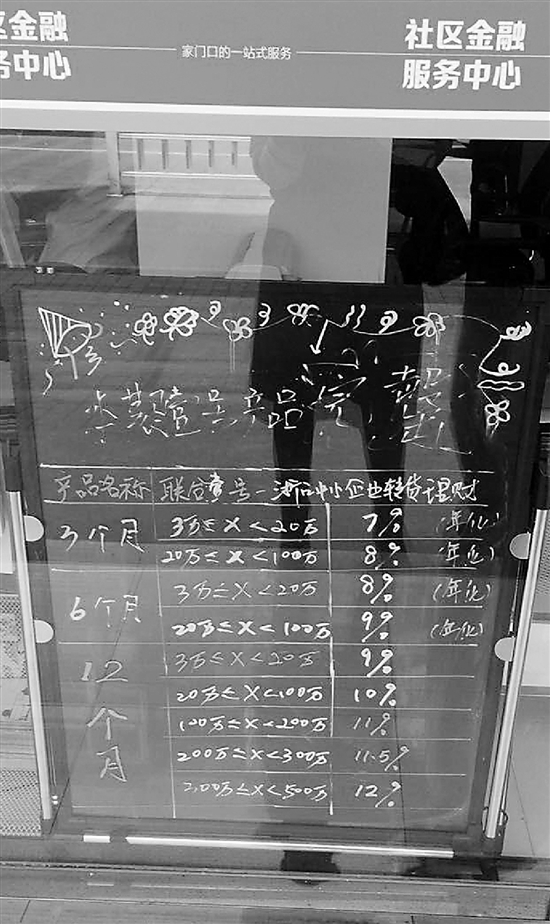 区金融
务中心
家门口的一站式服务
社区金融
服务中心
产品
产品名称 联合 一浙 中小企业转贷理财
3个月 3万≤X<20万 7% (年化)
20万≤X<100万 8% (年化)
6个月 3万≤X<20万 8% (年化)
20万≤X<100万 9% (年化)
12个月 3万≤X<20万 9%
20万≤X<100万 10%
100万≤X<200万 11%
200万≤X<300万 11.5%
≤X<500万 12%